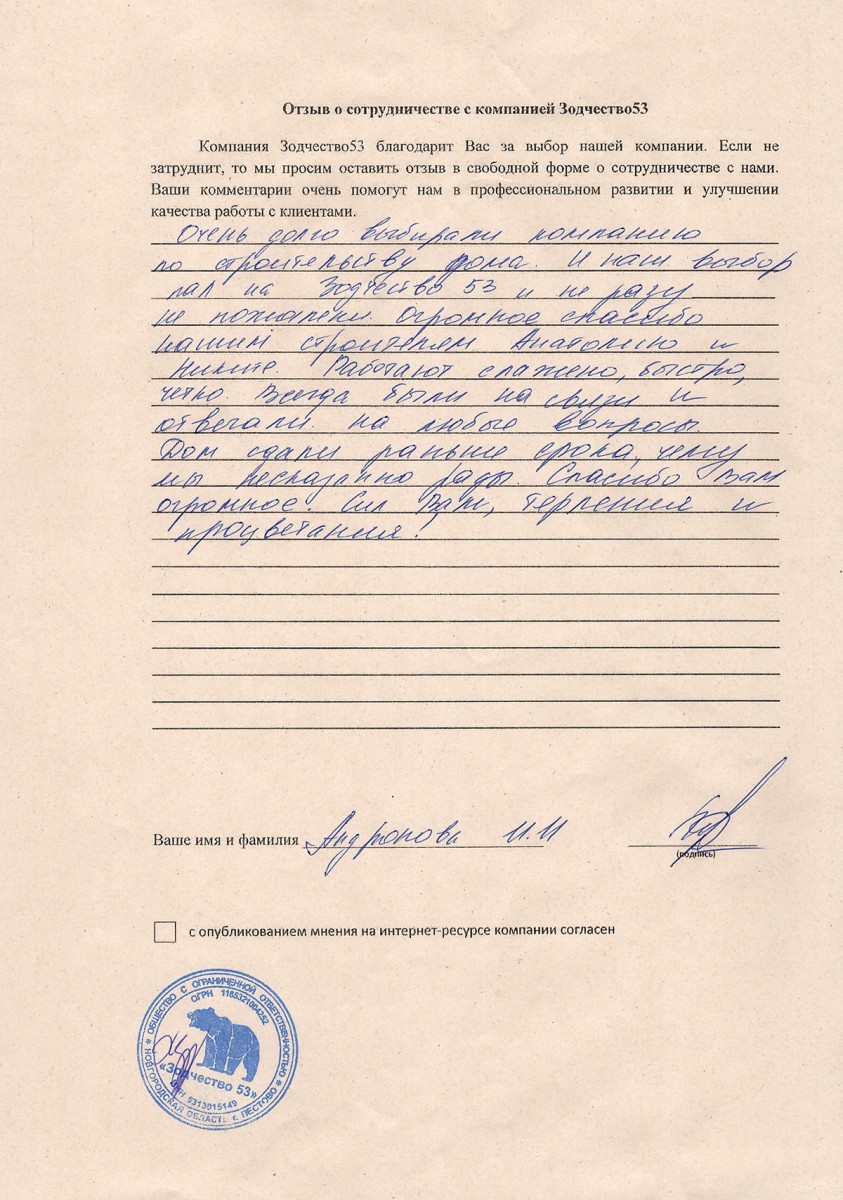 Отзыв о сотрудничестве с компанией Зодчество53
Компания Зодчество53 благодарит Вас за выбор нашей компании. Если не
затруднит, то мы просим оставить отзыв в свободной форме о сотрудничестве с нами.
Ваши комментарии очень помогут нам в профессиональном развитии и улучшении
качества работы с клиентами.
Очень долго выбирали компанию
по строительству дома. И наш выбор
пал на Зодчество 53 и не разу
не пожалели. Огромное спасибо
нашим строителям Анатолию и
Никите. Работают слажено, быстро,
четко. Всегда были на связи и
отвечали на любые вопросы.
Дом сдали раньше срока, чему
мы несказанно рады. Спасибо Вам
огромное. Сил Вам, терпения и
процветания!
Ваше имя и фамилия Андронова И.И
(подпись)
с опубликованием мнения на интернет-ресурсе компании согласен
ОБЩЕСТВО С ОГРАНИЧЕННОЙ ОТВЕТСТВЕННОСТЬЮ
ОГРН 1165321064252
«Зодчество 53»
ИНН 5313015149
НОВГОРОДСКАЯ ОБЛАСТЬ г. ПЕСТОВО